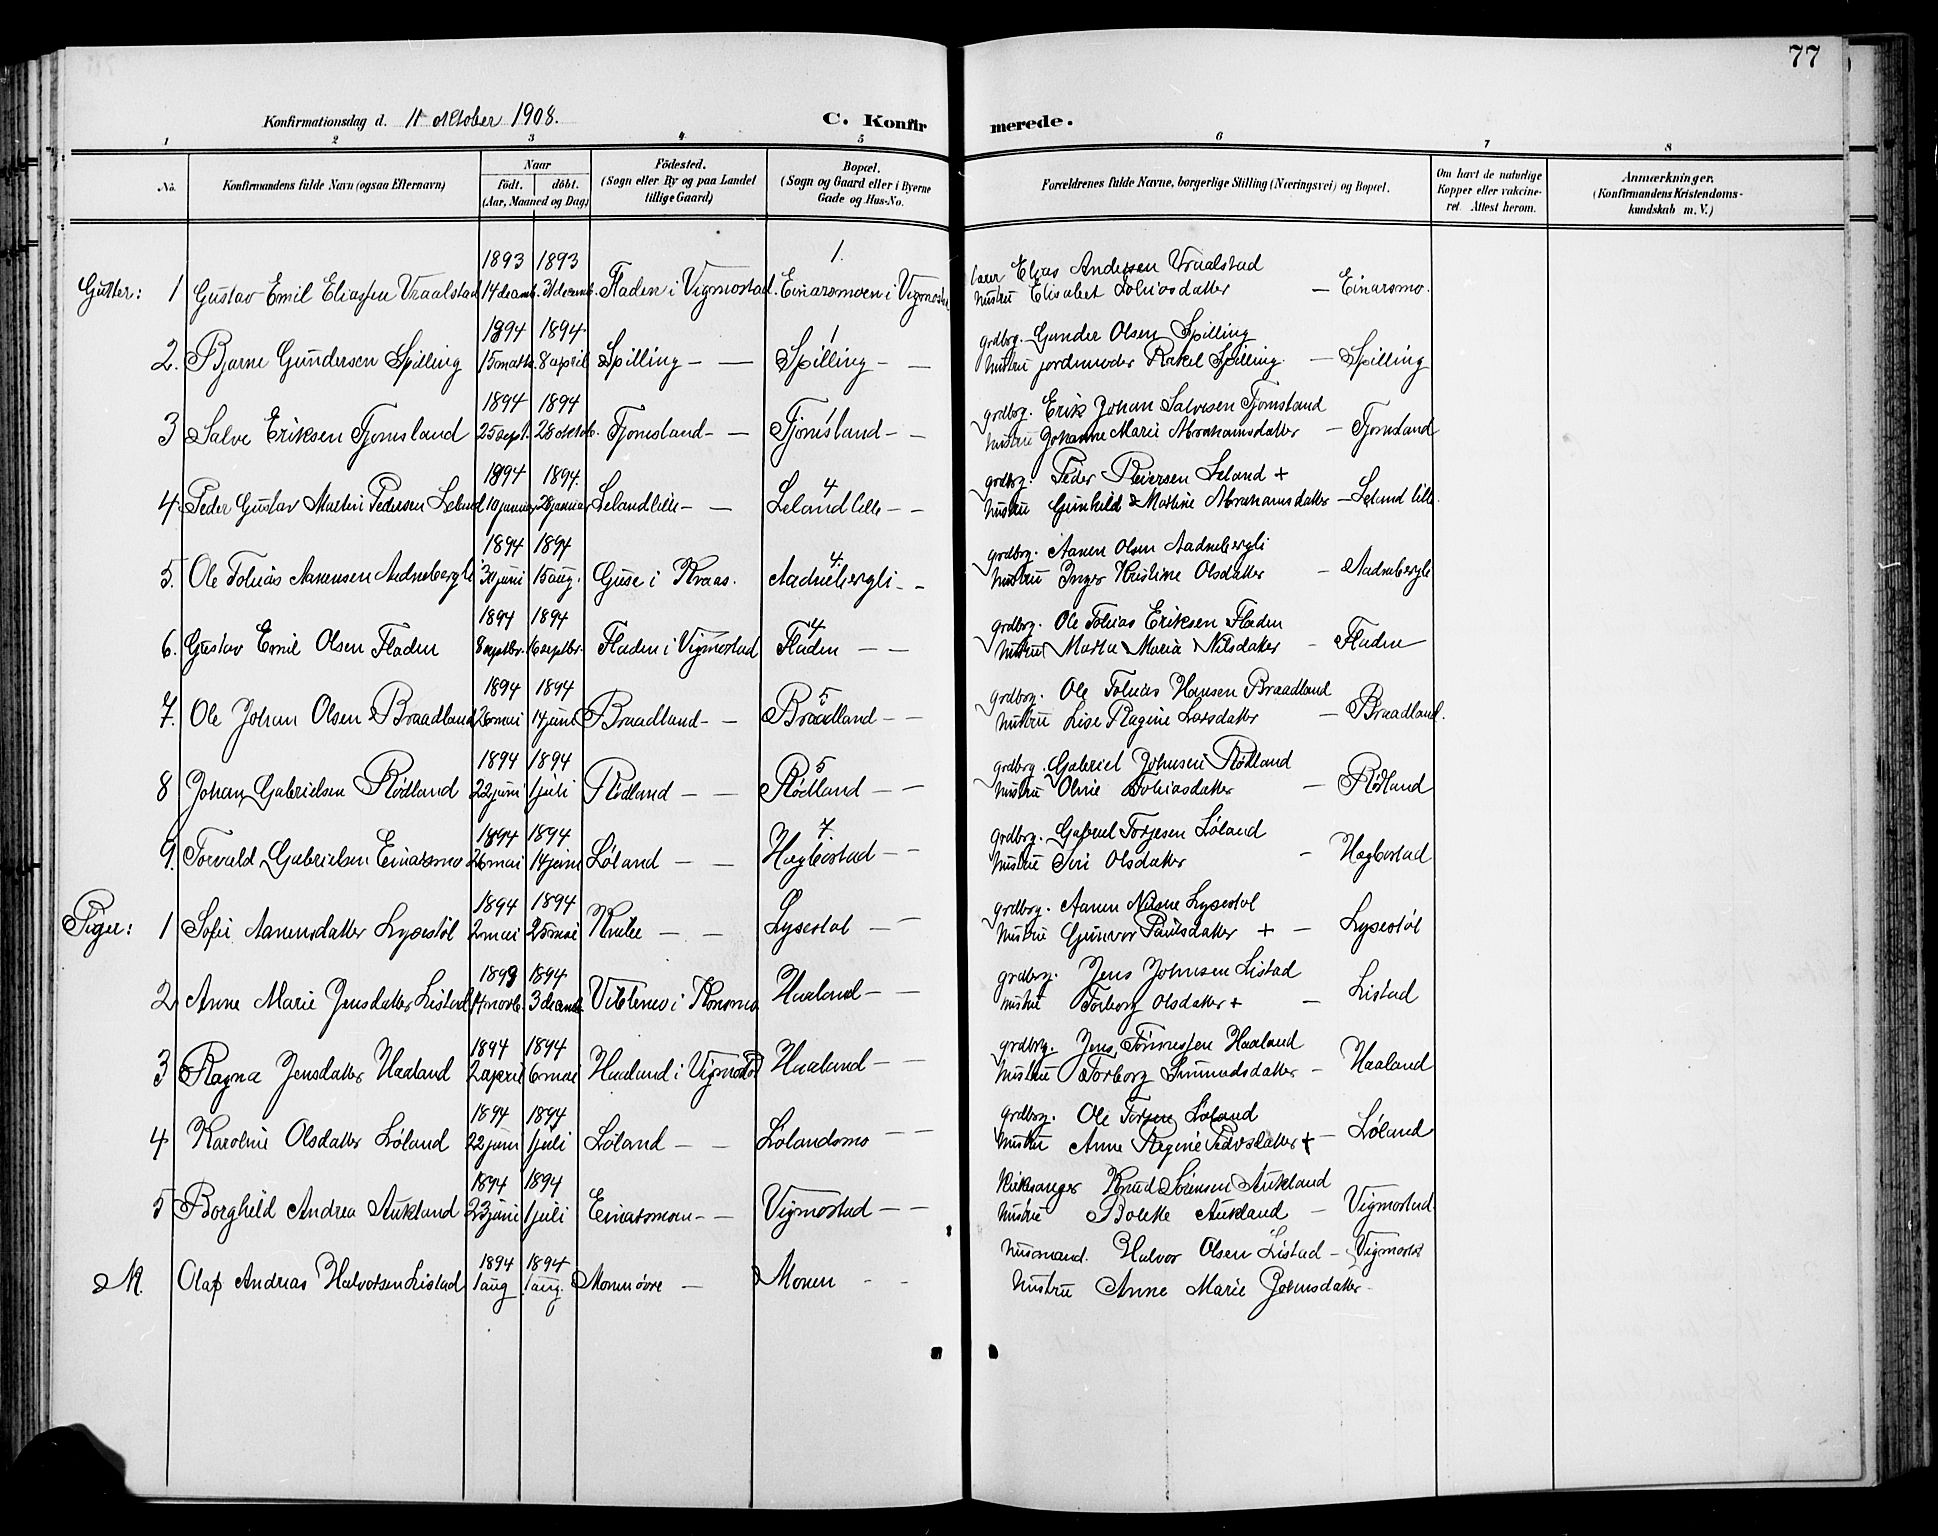 77
Konfirmationsdag d. 11 oktober 1908. C. Konfirmerede.
1 2 3 4 5 6 7 8
No. Konfirmandens fulde Navn (ogsaa Efternavn) Naar födt. döbt. (Aar, Maaned og Dag) Födested. (Sogn eller By og paa Landet tillige Gaard) Bopæl. (Sogn og Gaard eller i Byerne Gade og Hus-No. Forældrenes fulde Navne, borgerlige Stilling (Næringsvei) og Bopæl. Om havt de naturlige Kopper eller vakcineret. Attest herom. Anmærkninger. (Konfirmandens Kristendomskundskab m. V.)
1893 1893 1. Elias Andersen Vraalstad
Gutter: 1 Gustav Emil Eliassen Vraalstad 14 decemb. 31 decemb. Fladen i Vigmostad. Einarsmoen i Vigmostad hustru Elisabet Tobiasdatter — Einarsmo.
1894 1894 1 grdbrg. Gunder Olsen Spilling
2. Bjarne Gundersen Spilling 15 marts. 8 april Spilling — — Spilling — — hustru jordmoder Rakel Spilling — Spilling
1894 1894 1 grdbrg. Erik Johan Salvesen Fjomsland
3 Salve Eriksen Fjomsland 25 sept. 28 oktob. Fjomsland — — Fjomsland — — hustru Johanne Marie Abrahamsdatter — Fjomsland
1894 1894. 4 grdbrg. Peder Reiersen Leland +
4 Peder Gustav Martin Pedersen Leland 10 januar 28 januar Lelandlille — — Lelandlille — — hustru Gunhild Martine Abrahamsdatter — Leland lille.
1894 1894 4. grdbrg. Aanen Olsen Aadnebergli
5. Ole Tobias Aanensen Aadnebergli 30 juni 15 aug. Guse i Kraas. Aadnebergli — — hustru Inger Kristine Olsdatter — Aadnebergli
1894 1894 4 grdbrg. Ole Tobias Eriksen Fladen
6. Gustav Emil Olsen Fladen 8 septbr. 16 septbr. Fladen i Vigmostad Fladen — — hustru Marta Maria Nilsdatter — Fladen
1894 1894 5 grdbrg. Ole Tobias Hansen Braadland
7. Ole Johan Olsen Braadland 26 mai 14 juni Braadland — — Braadland — — hustru Lise Ragine Larsdatter — Braadland.
1894 1894 5 grdbrg. Gabriel Johnsen Rødland
8 Johan Gabrielsen Rødland 22 juni 1 juli Rødland — — Rødland — — hustru Oline Tobiasdatter — Rødland
1894 1894 7. grdbrg. Gabriel Torjesen Løland
9. Torvald Gabrielsen Einarsmo 26 mai 14 juni Løland — — Hægbostad — — hustru Siri Olsdatter — Hægbostad
1894 1894 grdbrg. Aanen Nilsen Lysestøl
Piger: 1 Sofie Aanensdatter Lysestøl 2 mai 25 mai — — Lysestøl — — hustru Gunvor Paulsdatter + — Lysestøl
1893 1894 grdbrg. Jens Johnsen Listad
2 Anne Marie Jensdatter Listad novb. 3 decemb. i Konsmo Haaland — — hustru Torborg Olsdatter + — Listad
1894 1894 grdbrg. Jens Tønnessen Haaland
3 Ragna Jensdatter Haaland 2 april 6 mai Haaland i Vigmostad Haaland — — hustru Torborg Simundsdatter — Haaland
1894 1894 grdbrg. Ole Torjesen Løland
4 Karoline Olsdatter Løland 22 juni 1 juli Løland — — Lølandsmo — — hustru Anne Regine Pedersdatter + — Løland
1894 1894 Kirkesanger Knud Sørensen Aukland
5 Borghild Andrea Aukland 23 juni 1 juli Einarsmoen — — Vigmostad — — hustru Bolette Aukland — Vigmostad
1894 1894 husmand. Halvor Olsen Listad — Vigmostad
Olaf Andreas Halvorsen Listad 1 aug 1 aug. Monen øvre — Monen — — hustru Anne Marie Johnsdatter —